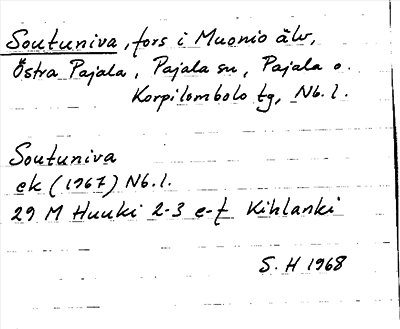 Soutuniva, fors i Muonio älv,
Östra Pajala, Pajala sn, Pajala o.
Korpilombolo tg, Nb. l.
Soutuniva
ek (1967) Nb. l.
29 M Huuki 2-3 e-f Kihlanki
S. H 1968